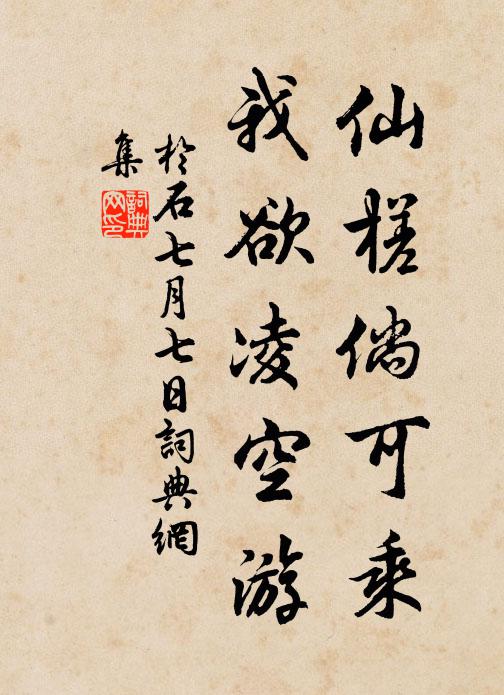 仙槎倘可乘
我欲凌空游
於石七月七日詞典網
集
詞典網印